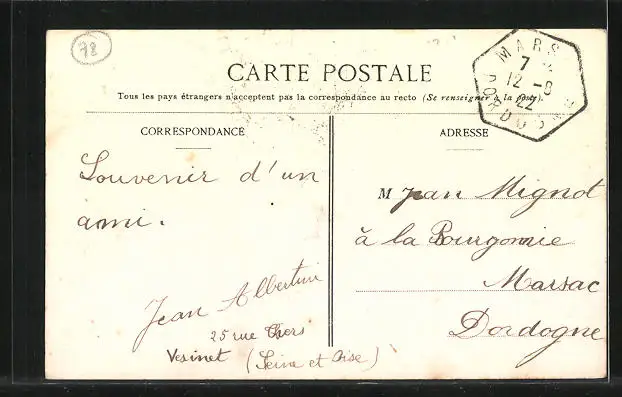 78
CARTE POSTALE
Tous les pays étrangers n'acceptent pas la correspondance au recto (Se renseigner à la poste).
CORRESPONDANCE
Souvenir d'un
ami.
Jean Albertini
25 rue Thers
Vesinet (Seine et Oise)
ADRESSE
M Jean Mignot
à la Bourgonnie
Marsac
Dordogne
MARS
7
12 - 8
22
DORDOGNE